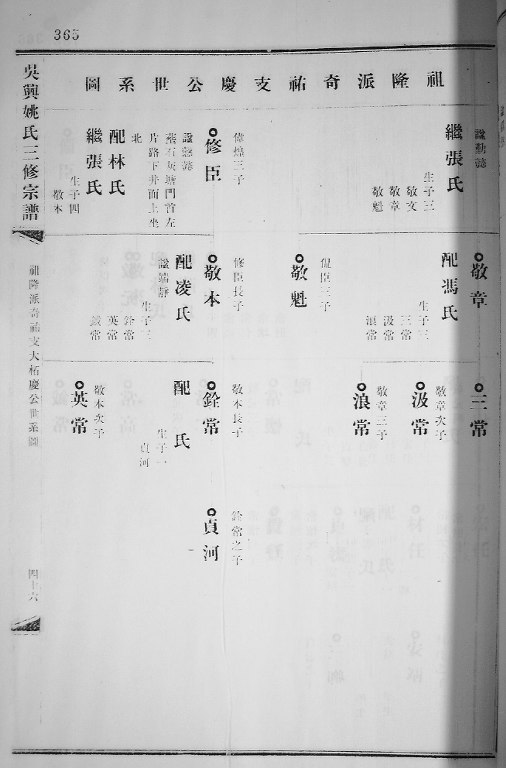 365
祖隆派奇祐支慶公世系圖
吳興姚氏三修宗譜
祖隆派奇祐支大柘慶公世系圖
四十六
諡勤懿
繼張氏
生子三
敬文
敬章
敬魁
偉煌三子
修臣
諡懿懿
葬石灰塘門首左
片路下井面上坐
北
配林氏
繼張氏
生子四
敬本
敬章
配馮氏
生子三
三常
汲常
浪常
侃臣三子
敬魁
修臣長子
敬本
配凌氏
諡端靜
生子三
銓常
英常
鉞常
三常
敬章次子
汲常
敬章三子
浪常
敬本長子
銓常
配 氏
生子一
貞河
敬本次子
英常
銓常之子
貞河